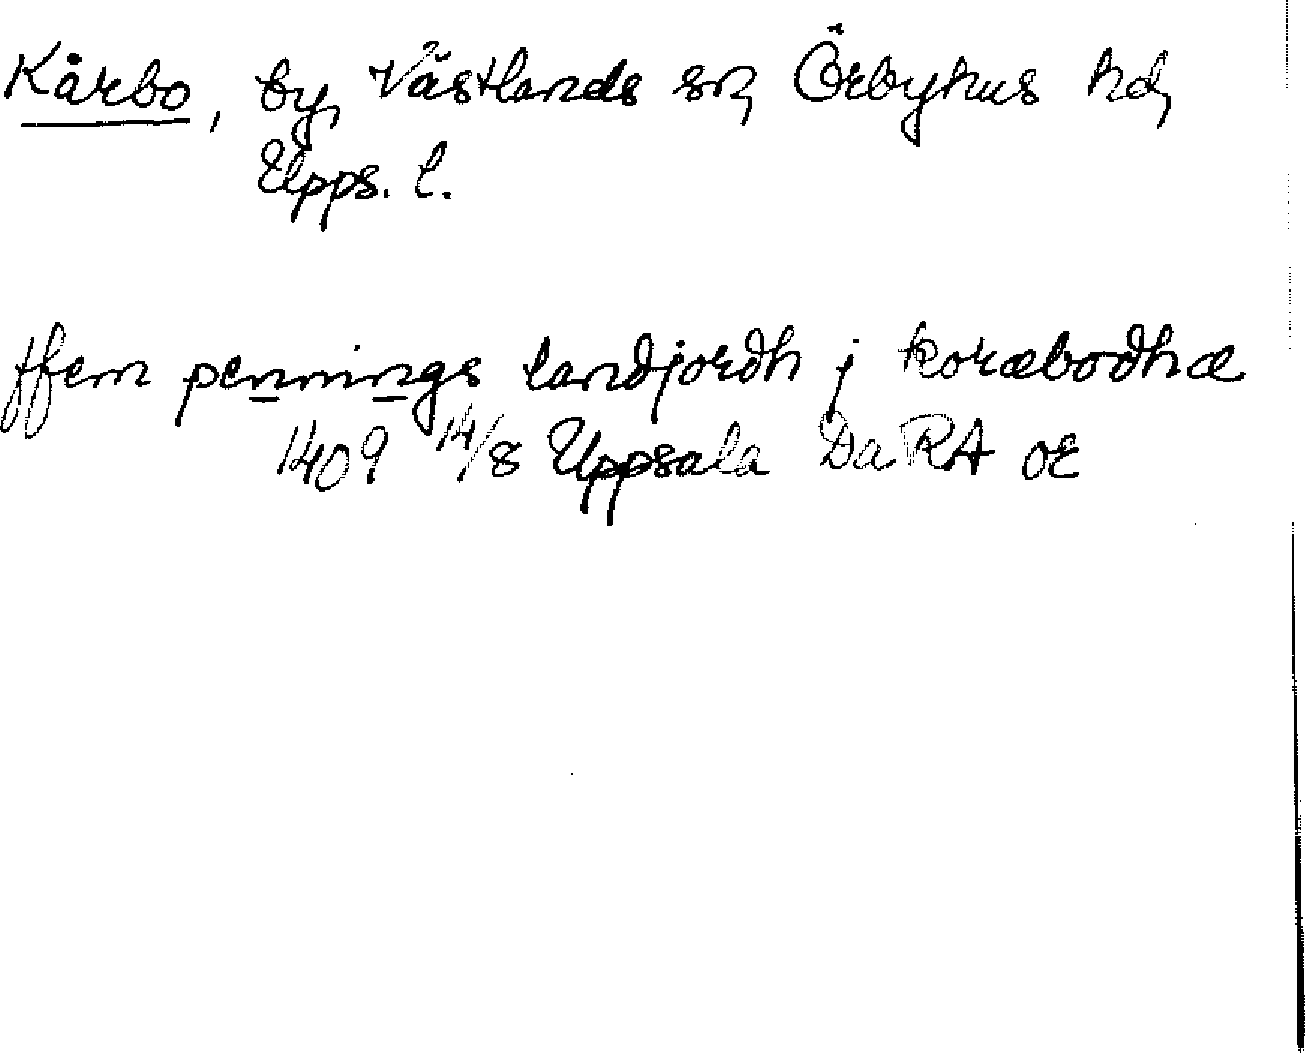 Kårbo, by, Västlands sn, Örbyhus hd,
Upps. l.
ffem pennings landjordh j koræbodhæ
1409 14/8 Uppsala DaRA OE